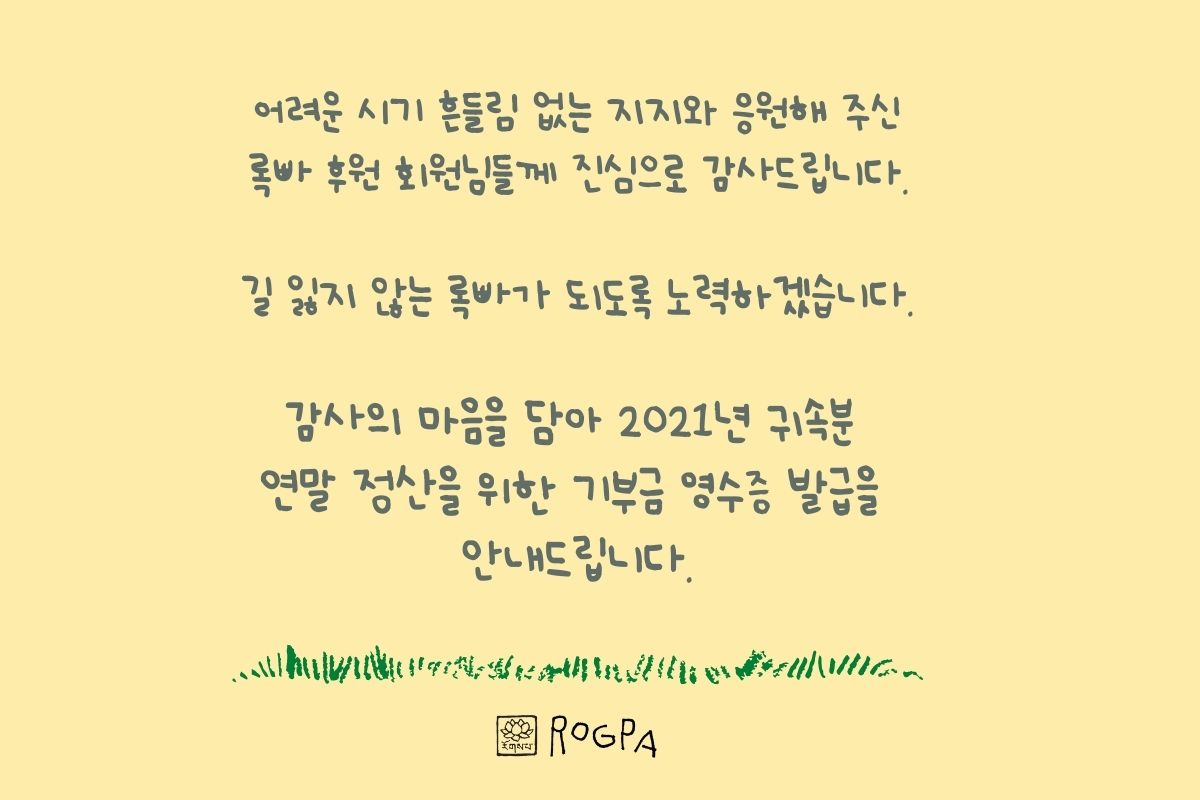 어려운 시기 흔들림 없는 지지와 응원해 주신
록빠 후원 회원님들께 진심으로 감사드립니다.
길 잃지 않는 록빠가 되도록 노력하겠습니다.
감사의 마음을 담아 2021년 귀속분
연말 정산을 위한 기부금 영수증 발급을
안내드립니다.
རོགས་པ་
ROGPA